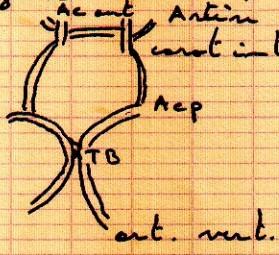 Ac ant Artère
carot int
Acp
TB
art. vert.